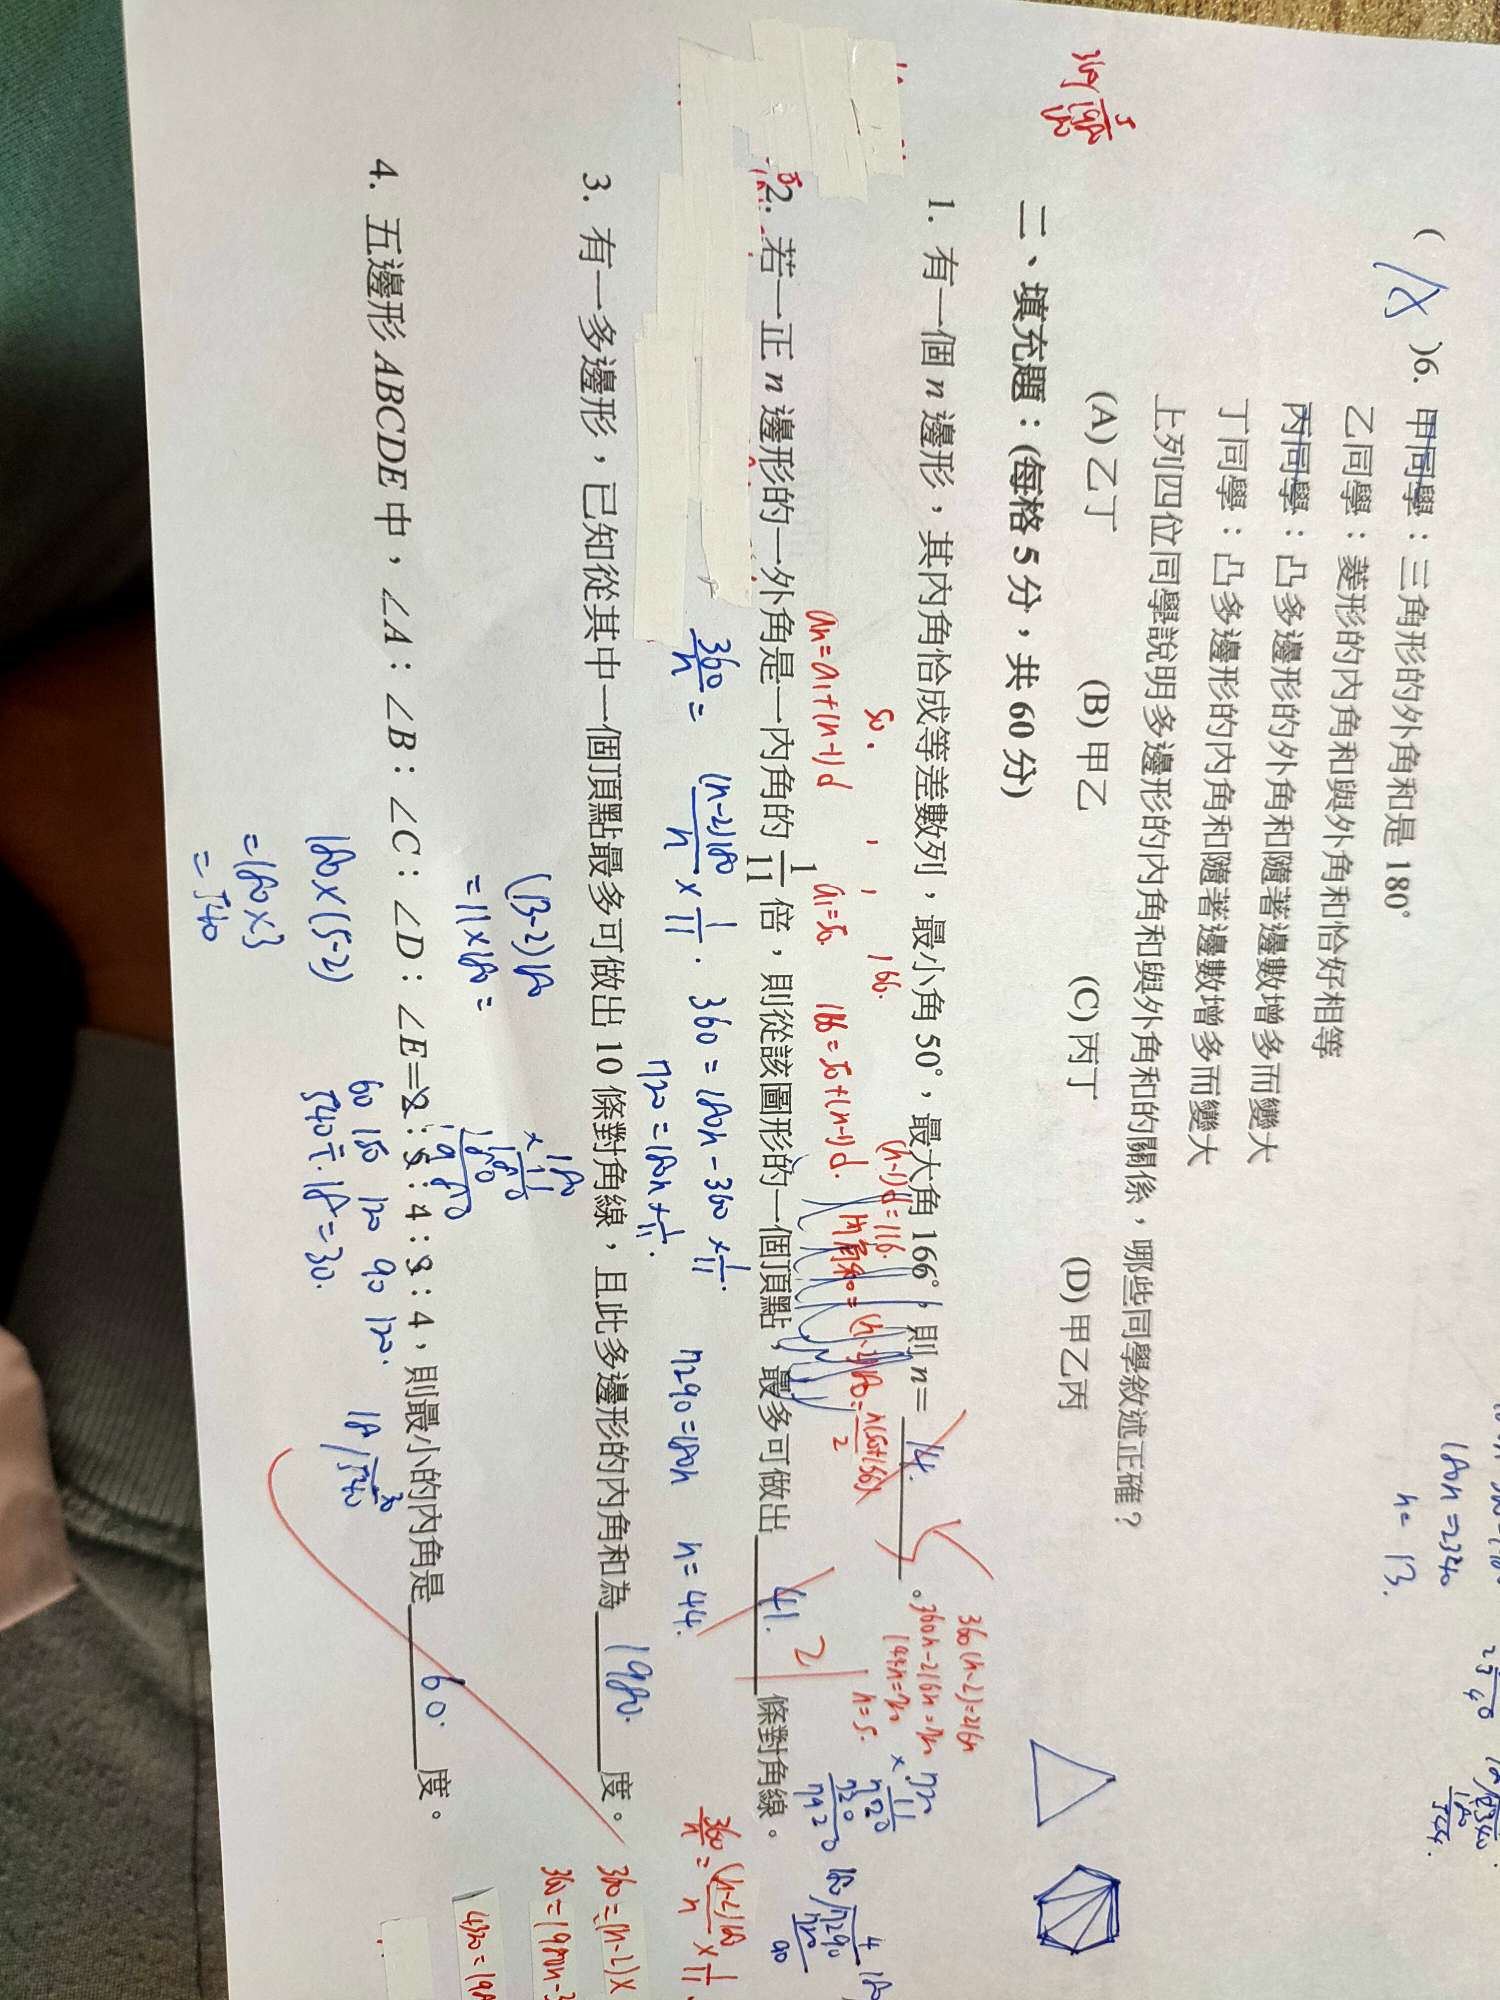 180n=2340
n= 13.
( )6. 甲同學：三角形的外角和是 180°
乙同學：菱形的內角和與外角和恰好相等
丙同學：凸多邊形的外角和隨著邊數增多而變大
丁同學：凸多邊形的內角和隨著邊數增多而變大
上列四位同學說明多邊形的內角和與外角和的關係，哪些同學敘述正確？
(A) 乙丁 (B) 甲乙 (C) 丙丁 (D) 甲乙丙
二、填充題：(每格 5 分，共 60 分)
1. 有一個 n 邊形，其內角恰成等差數列，最小角 50°，最大角 166°，則 n= 14. 。
360(n-2)=216n
360n-216n=720
144n=720
n=5.
50. , , 166.
(n-1)d=116.
an=a1+(n-1)d a1=50. 166=50+(n-1)d.
2. 若一正 n 邊形的一外角是一內角的 1/11 倍，則從該圖形的一個頂點，最多可做出 41. 21 條對角線。
360/n = (n-2)180/n × 1/11. 360=180n-360 × 1/11. 7290=180n n=44.
720=180n × 1/11.
360/n = (n-2)180/n × 1/11.
3. 有一多邊形，已知從其中一個頂點最多可做出 10 條對角線，且此多邊形的內角和為 1980. 度。
(13-2)180
=11×180=
180
×11
180
180
1980
360=(n-2)×
4. 五邊形 ABCDE 中，∠A：∠B：∠C：∠D：∠E=2：5：4：3：4，則最小的內角是 60. 度。
180×(5-2)
=180×3
=540
60 150 120 90 120.
540÷18=30.